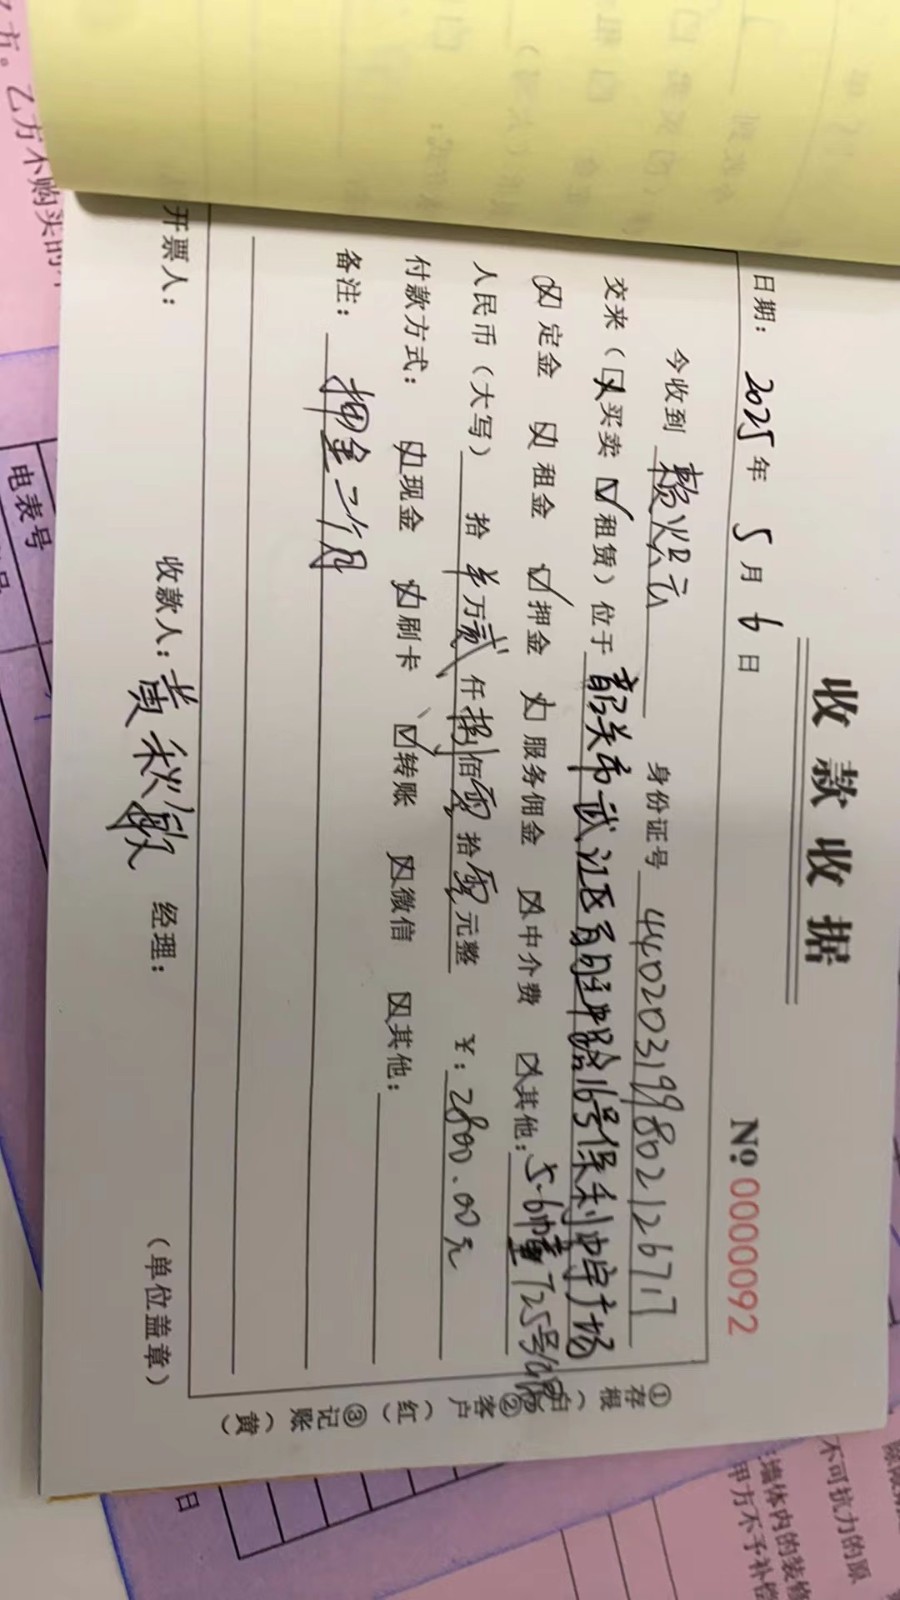 收款收据
No 0000092
日期: 2025年 5月 6日
今收到 身份证号 440203199802126717
交来（买卖 ☑租赁）位于 韶关市武江区百旺中路16号保利中宇广场
定金 租金 ☑押金 服务佣金 中介费 其他: 5-6幢725号
人民币（大写） 拾 万贰仟捌佰零拾零元整 ¥: 2800.00元
付款方式: 现金 刷卡 ☑转账 微信 其他:
备注: 押金二个月
开票人: 收款人: 黄秋敏 经理: （单位盖章）
①存根（白） ②客户（红） ③记账（黄）
方。乙方不购买的
电表号
日
不可抗力的原
墙体内的装修
甲方不予补偿